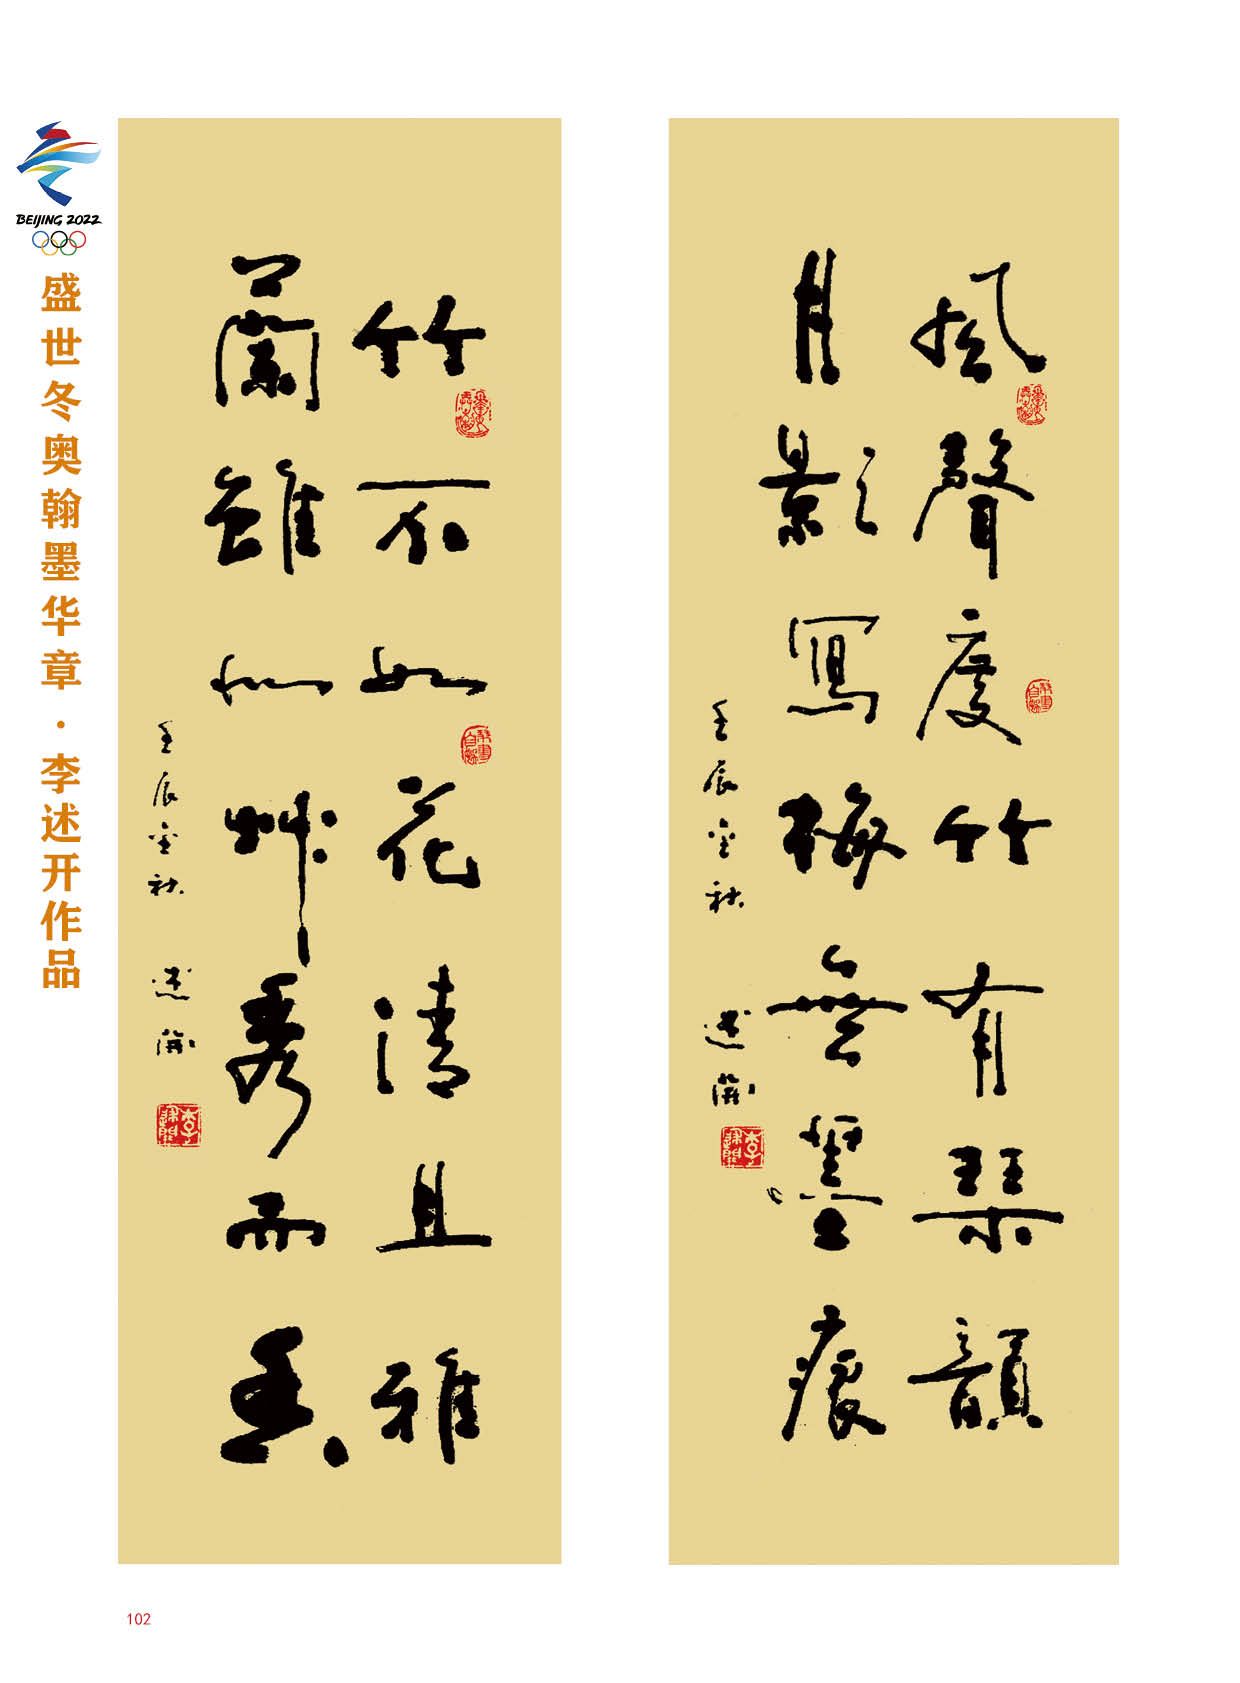 BEIJING 2022
盛世冬奥翰墨华章·李述开作品
風聲度竹有琴韻
月影寫梅無墨痕
壬辰金秋 述開
竹不如花清且雅
蘭雖似艸秀而香
壬辰金秋 述開
102